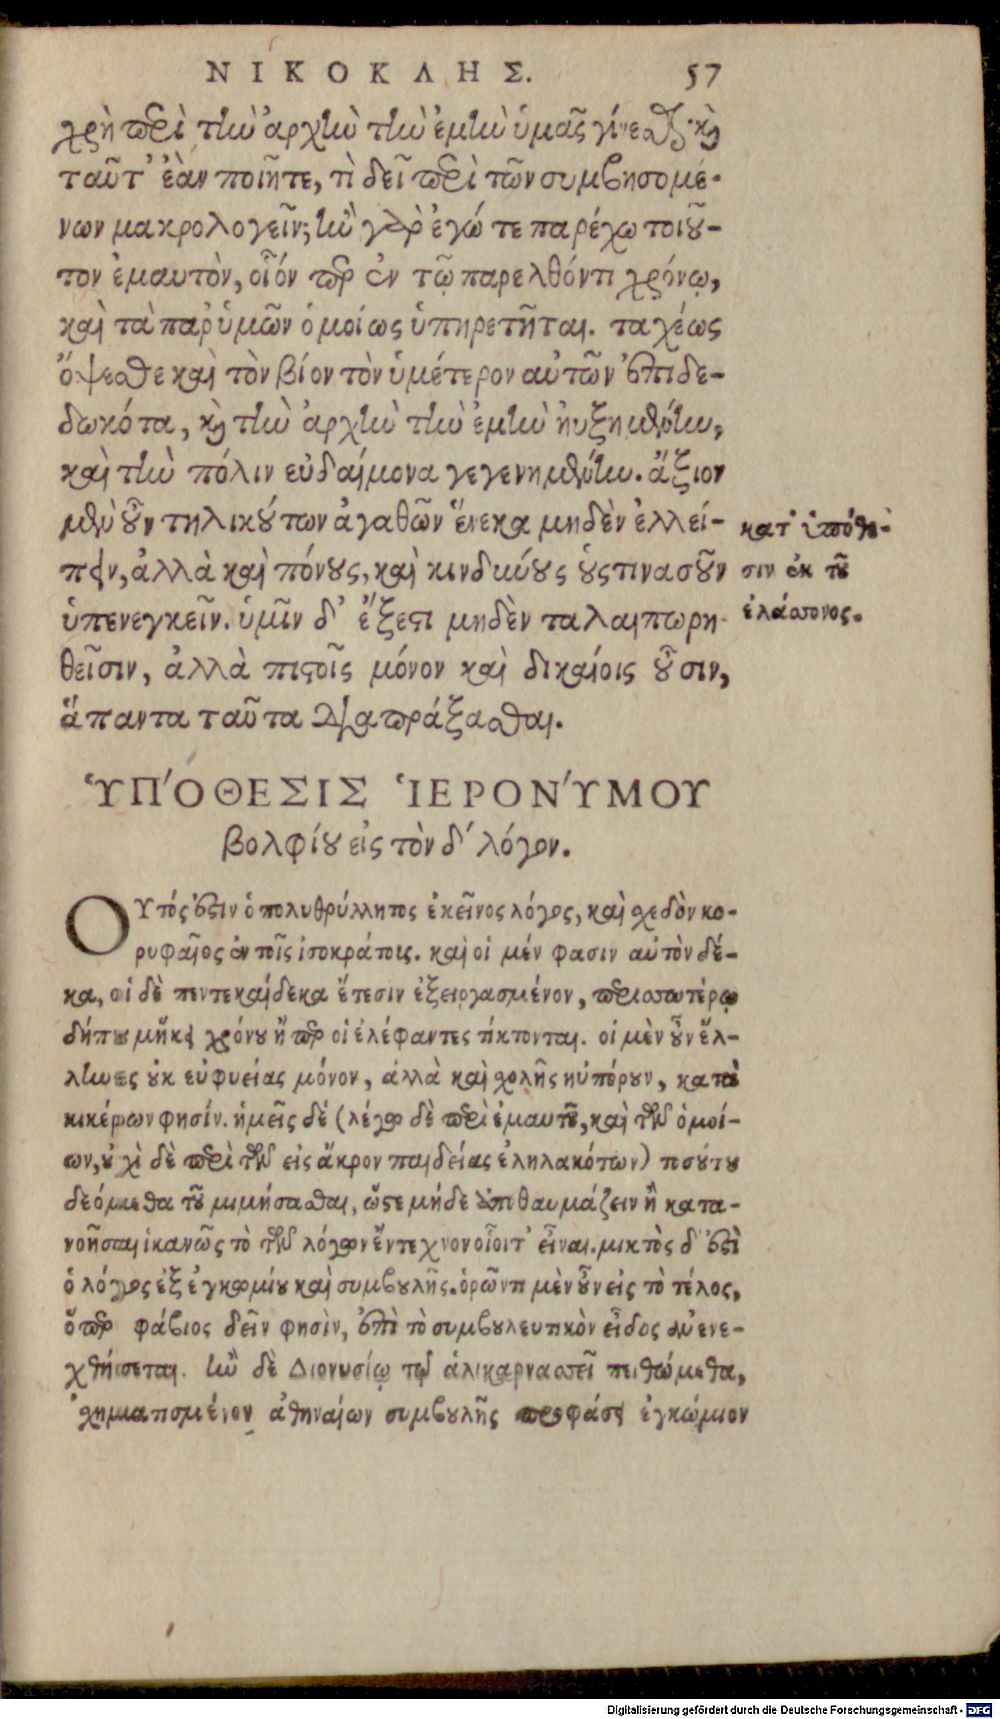 ΝΙΚΟΚΛΗΣ. 57
χρὴ περὶ τὴν ἀρχὴν τὴν ἐμὴν ὑμᾶς γίνεσθαι. καὶ
ταῦτ' ἐὰν ποιῆτε, τί δεῖ περὶ τῶν συμβησομέ-
νων μακρολογεῖν; ἢν γὰρ ἐγώ τε παρέχω τοιοῦ-
τον ἐμαυτὸν, οἷόν περ ἐν τῷ παρελθόντι χρόνῳ,
καὶ τὰ παρ' ὑμῶν ὁμοίως ὑπηρετῆται. ταχέως
ὄψεσθε καὶ τὸν βίον τὸν ὑμέτερον αὐτῶν ἐπιδε-
δωκότα, καὶ τὴν ἀρχὴν τὴν ἐμὴν ηὐξημένην,
καὶ τὴν πόλιν εὐδαίμονα γεγενημένην. ἄξιον
μὲν οὖν τηλικούτων ἀγαθῶν ἕνεκα μηδὲν ἐλλεί-
πειν, ἀλλὰ καὶ πόνους, καὶ κινδύνους οὑστινασοῦν
ὑπενεγκεῖν. ὑμῖν δ' ἔξεστι μηδὲν ταλαιπωρη-
θεῖσιν, ἀλλὰ πιστοῖς μόνον καὶ δικαίοις οὖσιν,
ἅπαντα ταῦτα διαπράξασθαι.
κατ' ὑπόθε-
σιν ἐκ τοῦ
ἐλάσσονος.
ὙΠΌΘΕΣΙΣ ἹΕΡΟΝΎΜΟΥ
βολφίου εἰς τὸν δ' λόγον.
ΟΥτός ἐστιν ὁ πολυθρύλλητος ἐκεῖνος λόγος, καὶ σχεδὸν κο-
ρυφαῖος ἐν τοῖς ἰσοκράτοις. καὶ οἱ μέν φασιν αὐτὸν δέ-
κα, οἱ δὲ πεντεκαίδεκα ἔτεσιν ἐξειργασμένον, περισσωτέρῳ
δήπου μήκει χρόνου ἤ περ οἱ ἐλέφαντες τίκτονται. οἱ μὲν οὖν ἕλ-
ληνες οὐκ εὐφυείας μόνον, ἀλλὰ καὶ σχολῆς ηὐπόρουν, κατὰ
κικέρων φησίν. ἡμεῖς δὲ (λέγω δὲ περὶ ἐμαυτοῦ, καὶ τῶν ὁμοί-
ων, οὐχὶ δὲ περὶ τῶν εἰς ἄκρον παιδείας ἐληλακότων) τοσούτου
δεόμεθα τοῦ μιμήσασθαι, ὥστε μήδε ἐπιθαυμάζειν ἢ κατα-
νοῆσαι ἱκανῶς τὸ τῶν λόγων ἔντεχνον οἷοίτ' εἶναι. μικτὸς δ' ἐστὶ
ὁ λόγος ἐξ ἐγκωμίου καὶ συμβουλῆς. ὁρῶντι μὲν οὖν εἰς τὸ τέλος,
ὅπερ φάβιος δεῖν φησὶν, ἐπὶ τὸ συμβουλευτικὸν εἶδος ἀνενε-
χθήσεται. ἢν δὲ Διονυσίῳ τῷ ἁλικαρνασσεῖ πειθώμεθα,
ἐσχηματισμένον ἀθηναίων συμβουλῆς προφάσει ἐγκώμιον
Digitalisierung gefördert durch die Deutsche Forschungsgemeinschaft - DFG